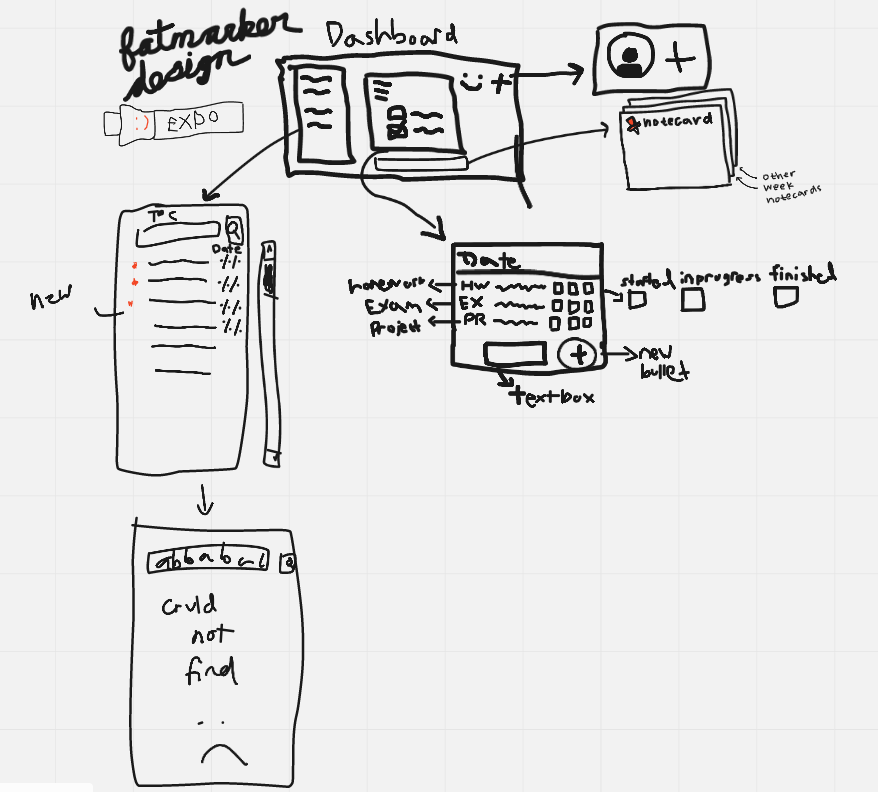 fatmarker
design
EXPO
Dashboard
+
notecard
other
week
notecards
ToC
Date
new
Date
HW
EX
PR
homework
Exam
Project
started
inprogress
finished
+
new
bullet
textbox
could
not
find